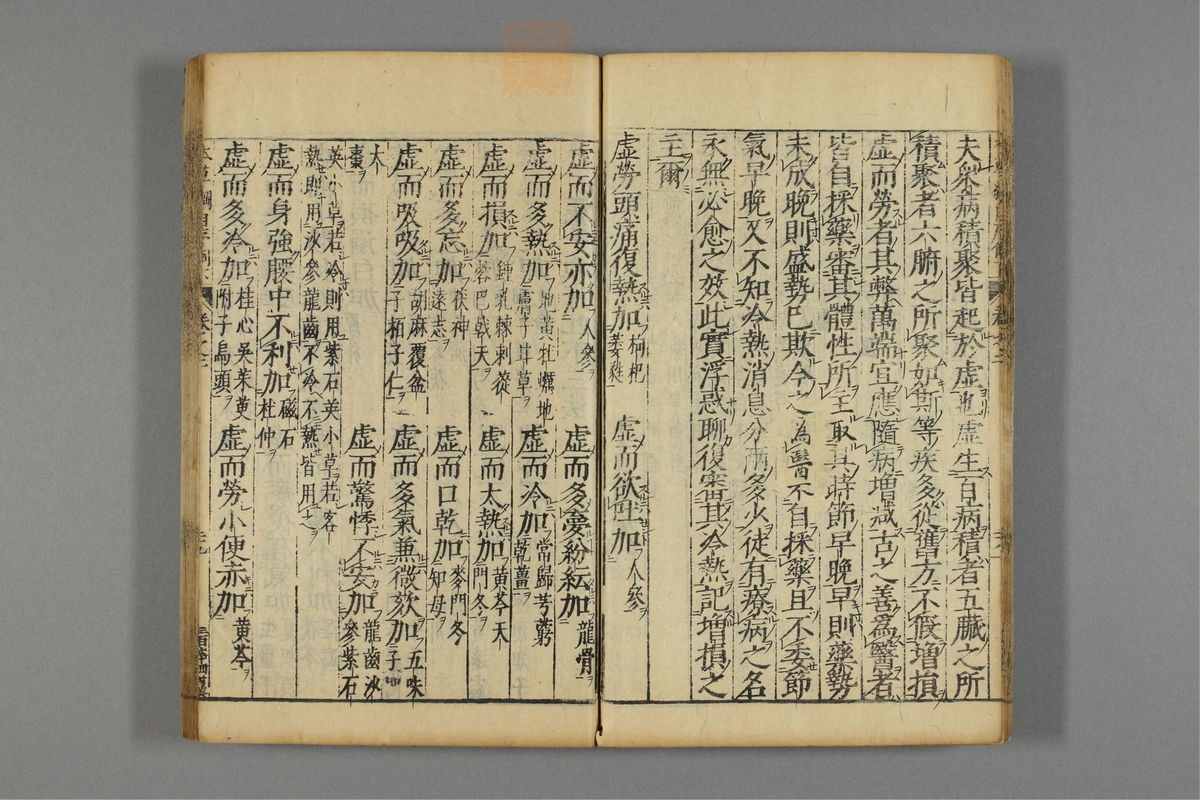 夫衆病積聚皆起於虛也虛生百病積者五臟之所
積聚者六腑之所聚如斯等疾多從舊方不假增損
虛而勞者其弊萬端宜應隨病增減古之善爲醫者
皆自採藥審其體性所主取其時節早晚早則藥勢
未成晚則盛勢已歇今之為醫不自採藥且不委節
氣早晚又不知冷熱消息分兩多少徒有療病之名
永無必愈之效此實浮惑聊復審其冷熱記增損之
主爾
虛勞頭痛復熱加枸杞萎蕤 虛而欲吐加人參
虛而不安亦加人參 虛而多夢紛紜加龍骨
虛而多熱加地黃牡蠣地膚子甘草 虛而冷加當歸芎藭乾薑
虛而損加鍾乳棘刺蓯蓉巴戟天 虛而大熱加黃芩天門冬
虛而多忘加茯神遠志 虛而口乾加麥門冬知母
虛而吸吸加胡麻覆盆子栢子仁 虛而多氣兼微欬加五味子
大棗 虛而驚悸不安加龍齒沙參紫石
英小草若冷則用紫石英小草若客
熱即用沙參龍齒不冷不熱皆用之
虛而身強腰中不利加磁石杜仲
虛而多冷加桂心吳茱萸附子烏頭 虛而勞小便赤加黃芩